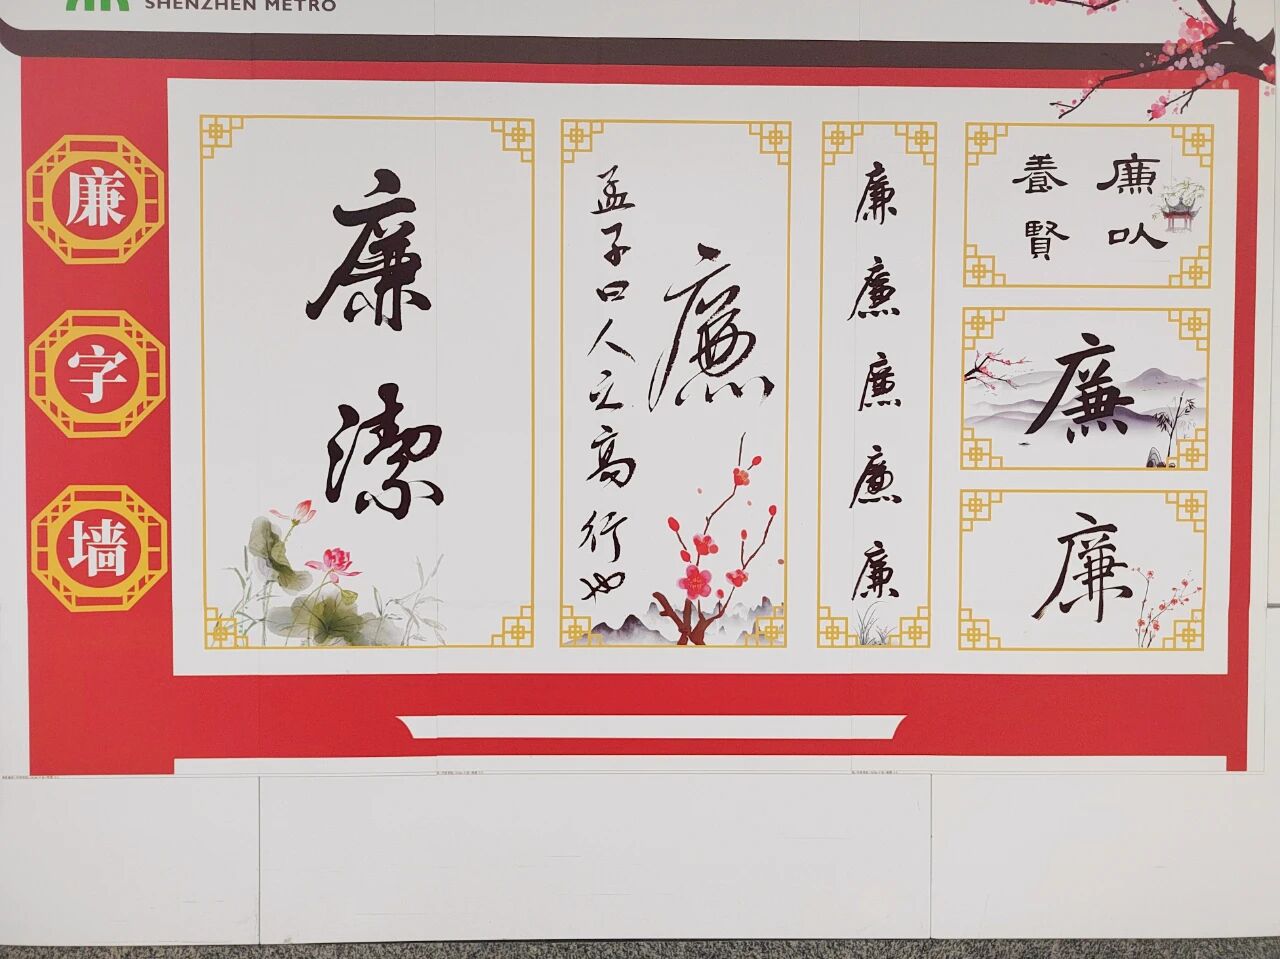 SHENZHEN METRO
廉
字
墙
廉潔
孟子曰人之高行也
廉
廉
廉
廉
廉
廉
廉以
養賢
廉
廉